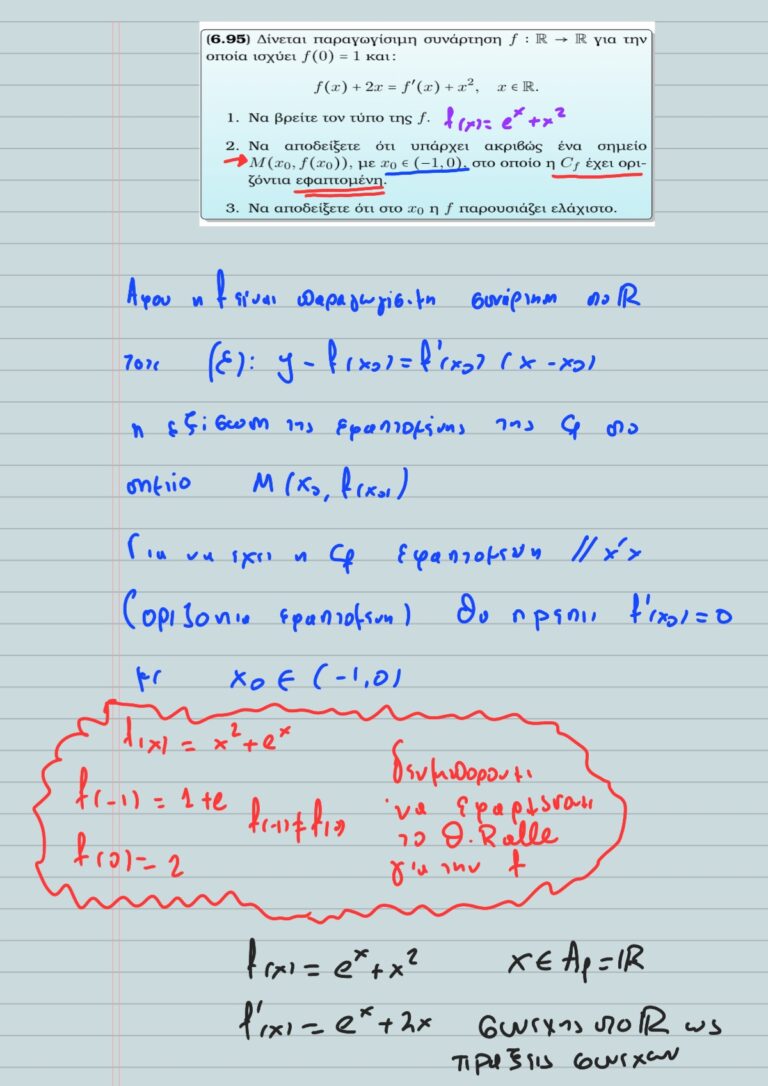 (6.95) Δίνεται παραγωγίσιμη συνάρτηση f : ℝ → ℝ για την
οποία ισχύει f(0) = 1 και:
f(x) + 2x = f′(x) + x², x ∈ ℝ.
1. Να βρείτε τον τύπο της f. f(x) = eˣ + x²
2. Να αποδείξετε ότι υπάρχει ακριβώς ένα σημείο
M(x₀, f(x₀)), με x₀ ∈ (−1, 0), στο οποίο η C_f έχει ορι-
ζόντια εφαπτομένη.
3. Να αποδείξετε ότι στο x₀ η f παρουσιάζει ελάχιστο.
Αφου η f είναι παραγωγίσιμη συνάρτηση στο ℝ
τότε (ε): y − f(x₀) = f′(x₀) (x − x₀)
η εξίσωση της εφαπτομένης της C_f στο
σημείο M(x₀, f(x₀))
Για να εχει η C_f εφαπτομενη // x′x
(οριζοντια εφαπτομενη) θα πρεπει f′(x₀) = 0
με x₀ ∈ (−1, 0)
f(x) = x² + eˣ
f(−1) = 1 + e
f(0) = 2
f(−1) ≠ f(0)
δεν μπορουμε
να εφαρμοσουμε
το Θ. Rolle
για την f
f(x) = eˣ + x² x ∈ A_f = ℝ
f′(x) = eˣ + 2x συνεχης στο ℝ ως
πραξεις συνεχων